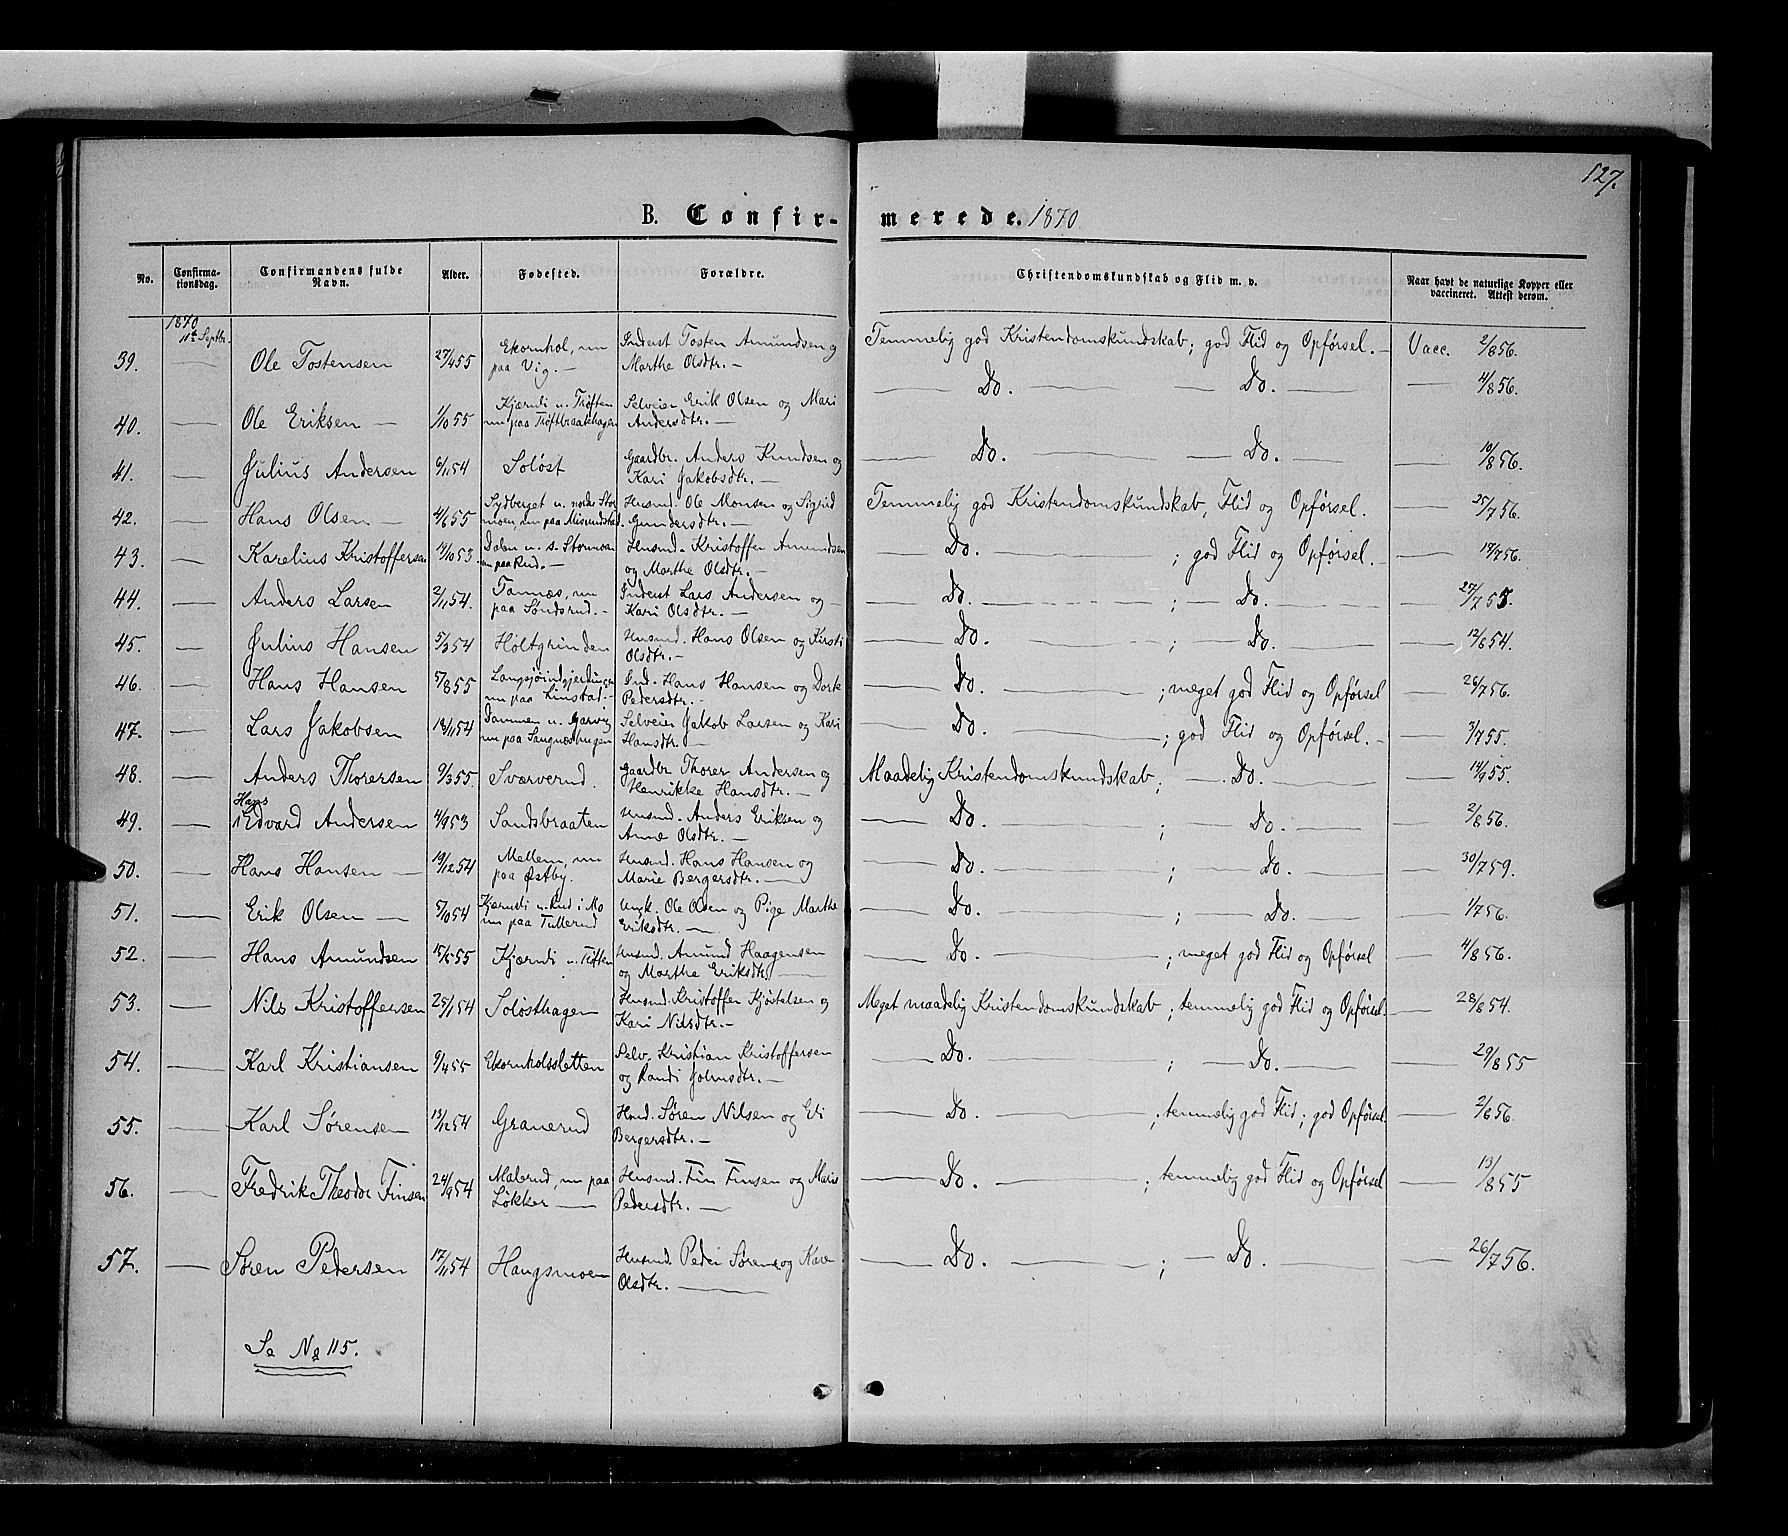 127.
B. Confir- merede. 1870
No. Confirma-tionsdag. Confirmandens fulde Navn. Alder. Fødested. Forældre. Christendomskundskab og Flid m. v. Naar havt de naturlige Kopper eller vaccineret. Attest derom.
1870
11te Septbr.
39. — Ole Tostensen 27/4 55 Ekornhol, nu paa Vig. — Inderst Tosten Amundsen og Marthe Olsdtr. — Temmelig god Kristendomskundskab; god Flid og Opførsel. — Vacc. 2/8 56.
40. — Ole Eriksen — 1/10 55 Kjærnli u. Tøften nu paa Tøftbraatehagen Selveier Erik Olsen og Mari Andersdtr. — Do. — Do. — 4/8 56.
41. — Julius Andersen 6/11 54 Soløst Gaardbr. Anders Knudsen og Kari Jakobsdtr. — Do. — Do. — 10/8 56.
42. — Hans Olsen — 4/6 55 Sydberget u. nordre Stormoen, nu paa Husmd. Ole Monsen og Sigrid Gundersdtr. — Temmelig god Kristendomskundskab, Flid og Opførsel. — 25/7 56.
43. — Karelius Kristoffersen 14/10 53. Dalen u. s. Stormoen nu paa Rud. — Husmd. Kristoffer Amundsen og Marthe Olsdtr. — Do. — ; god Flid og Opførsel. — 17/7 56.
44. — Anders Larsen 2/11 54. Tannæs, nu paa Søndsrud. — Inderst Lars Andersen og Kari Olsdtr. — Do. — ; — Do. — 27/7 55.
45. — Julius Hansen 5/3 54 Holtgrinden Husmd. Hans Olsen og Kirsti Olsdtr. — Do. — ; — Do. — 12/8 54.
46. — Hans Hansen 5/8 55 nu paa Linstad. — Ind. Hans Hansen og Dorte Pedersdtr. — Do. — ; meget god Flid og Opførsel — 26/7 56.
47. — Lars Jakobsen 18/11 54 Dammen u. Garvig nu paa Sangnæshagen Selveier Jakob Larsen og Kari Hansdtr. — Do. — ; god Flid og Opførsel. — 3/7 55.
48. — Anders Thorersen 9/3 55. Sværverud. Gaardbr Thorer Andersen og Henrikke Hansdtr. — Maadelig Kristendomskundskab; — Do. — 14/9 55.
49. — Hans Edvard Andersen 4/9 53 Sandsbraaten Husmd. Anders Eriksen og Anne Olsdtr. — Do. — ; — Do. — 2/8 56.
50. — Hans Hansen — 19/12 54 Mellem, nu paa Østby. Husmd. Hans Hansen og Marie Bergersdtr. — Do. — ; — Do. — 30/7 59.
51. — Erik Olsen — 5/10 54 Kjærnli u. Rud i Mo nu paa Tullerud Ungk. Ole Olsen og Pige Marthe Eriksdtr. — Do. — ; — Do. — 1/7 56.
52. — Hans Amundsen 15/5 55 Kjærnli u. Tøften Husmd. Amund Haagensen og Marthe Eriksdtr. — Do. — ; meget god Flid og Opførsel — 4/8 56.
53. — Nils Kristoffersen 25/1 54 Soløsthagen Husmd. Kristoffer Kjøstelsen og Kari Nilsdtr. — Meget maadelig Kristendomskundskab; temmelig god Flid og Opførsel. — 28/8 54.
54. — Karl Kristiansen 9/4 55 Ekornholsletten Selv. Kristian Kristoffersen og Randi Johnsdtr. — Do. — ; — Do. — 29/8 55
55. — Karl Sørensen 13/12 54 Granerud Husmd. Søren Nilsen og Eli Bergersdtr. — Do. — ; temmelig god Flid; god Opførsel — 2/8 56.
56. — Fredrik Theodor Finsen 24/9 54 Malerud, nu paa Løkker — Husmd. Fin Finsen og Marie Pedersdtr. — Do. — ; temmelig god Flid og Opførsel — 13/8 55
57. — Søren Pedersen 17/11 54 Haugsmoen Husmd. Peder Sørens. og Karen Olsdtr. — Do. — ; — Do. — 26/7 56.
Se No 115.